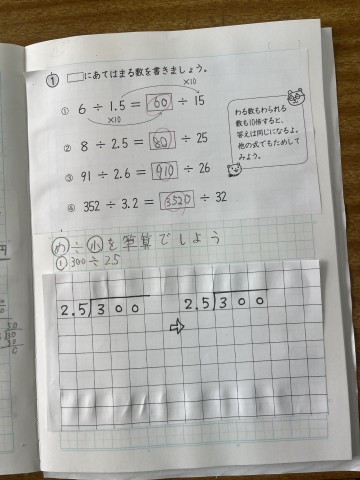 ① □にあてはまる数を書きましょう。
×10
① 6 ÷ 1.5 = 60 ÷ 15
×10
② 8 ÷ 2.5 = 80 ÷ 25
③ 91 ÷ 2.6 = 910 ÷ 26
④ 352 ÷ 3.2 = 3520 ÷ 32
わる数もわられる
数も10倍すると、
答えは同じになるよ。
他の式でもためして
みよう。
め ÷小を筆算でしよう
① 300÷2.5
2.5)300 ⇨ 2.5)300